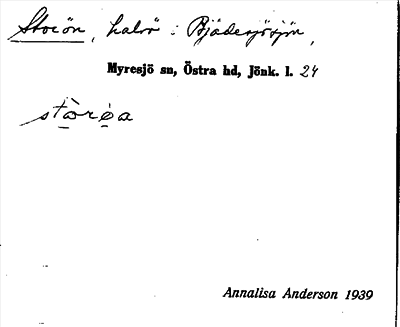 Storön, halvö i Bjädesjösjön,
Myresjö sn, Östra hd, Jönk. l. 24
stòröa
Annalisa Anderson 1939